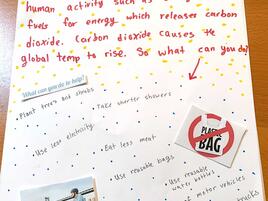 human activity such as
fuels for energy which releases carbon
dioxide. Carbon dioxide causes the
global temp to rise. So what can you do?
What can you do to help?
Plant trees and shrubs
Take shorter showers
Use less electricity
Eat less meat
PLASTIC
BAG
Use reusable bags
Use reusable
water bottles
of motor vehicles
trucks